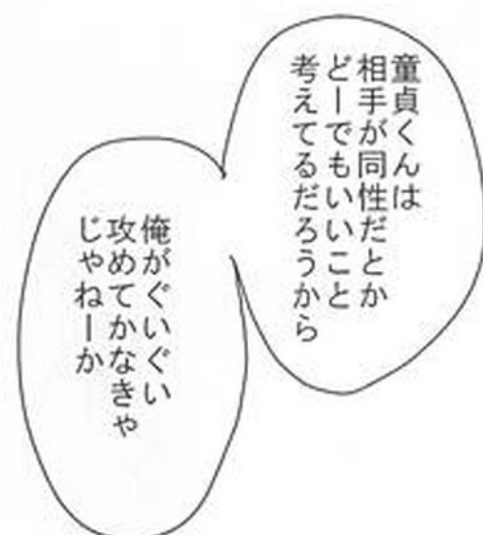 童貞くんは
相手が同性だとか
どーでもいいこと
考えてるだろうから
俺がぐいぐい
攻めてかなきゃ
じゃねーか